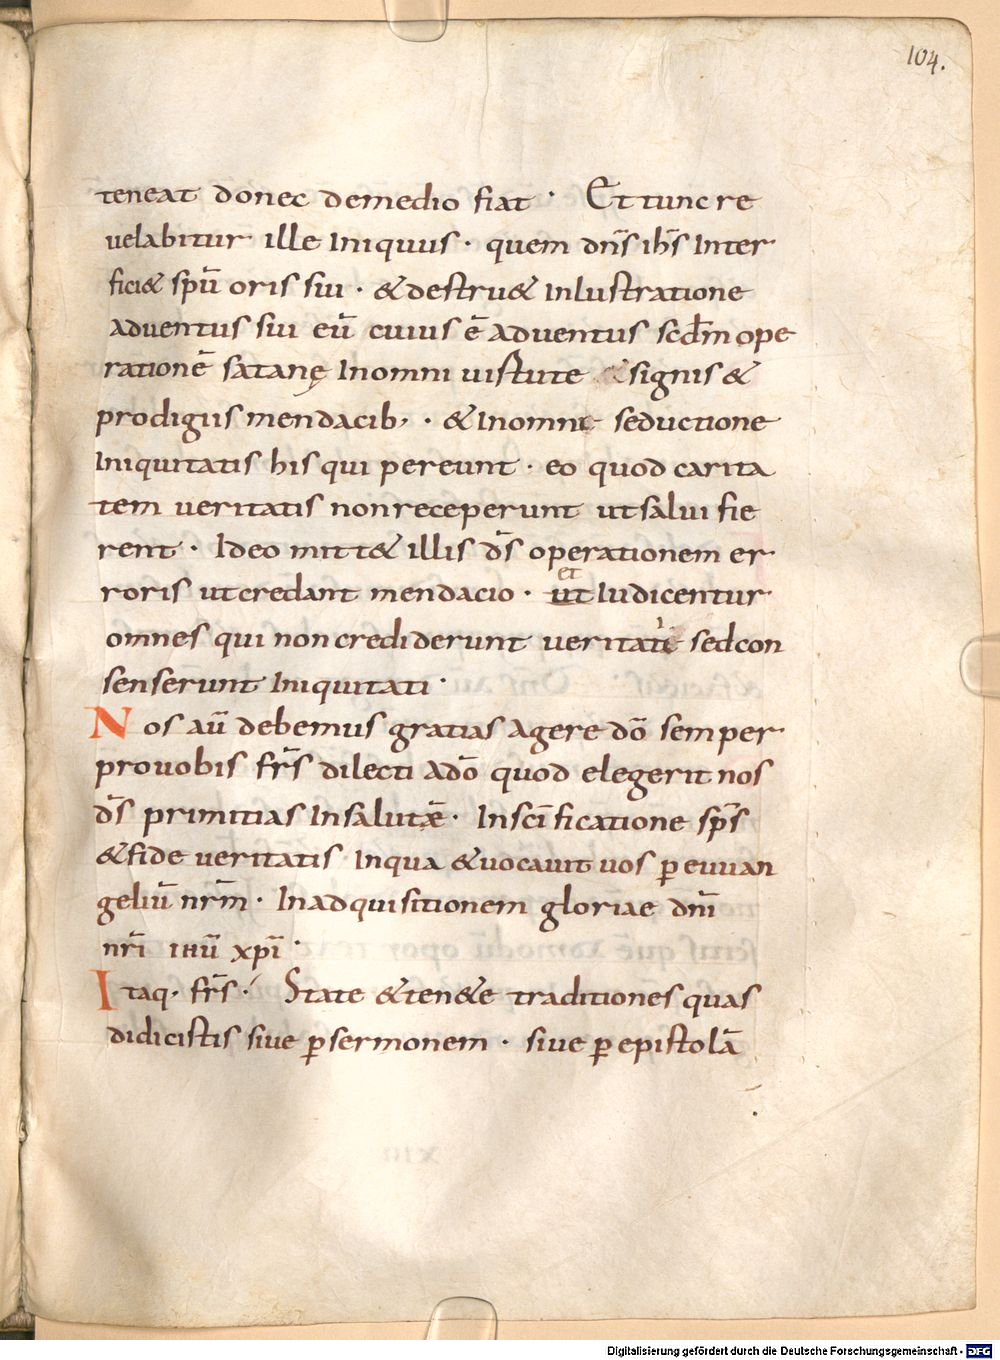 104.
teneat donec demedio fiat · Et tunc re
uelabitur ille Iniquus · quem dns̄ ihs̄ Inter
fici& spū oris sui · & destru& Inlustratione
aduentus sui eū cuius ē aduentus scdm̄ ope
rationē satanę In omni uirtute & signis &
prodigiis mendacib; · & In omni seductione
Iniquitatis his qui pereunt · eo quod carita
tem ueritatis non receperunt ut salui fie
rent · Ideo mitt& illis ds̄ operationem er
et
roris ut credant mendacio · ut Iudicentur
omnes qui non crediderunt ueritati sed con
senserunt Iniquitati ·
Nos aū debemus gratias agere dō semper
pro uobis frs̄ dilecti a dō quod elegerit nos
ds̄ primitias In salutē · In scīficatione sps̄
& fide ueritatis In qua & uocauit uos ꝑ euuan
geliū nrm̄ · In adquisitionem gloriae dnī
nrī ihū xpī ·
Itaq· frs̄ · State & ten&e traditiones quas
didicistis siue ꝑ sermonem · siue ꝑ epistolā
Digitalisierung gefördert durch die Deutsche Forschungsgemeinschaft - DFG